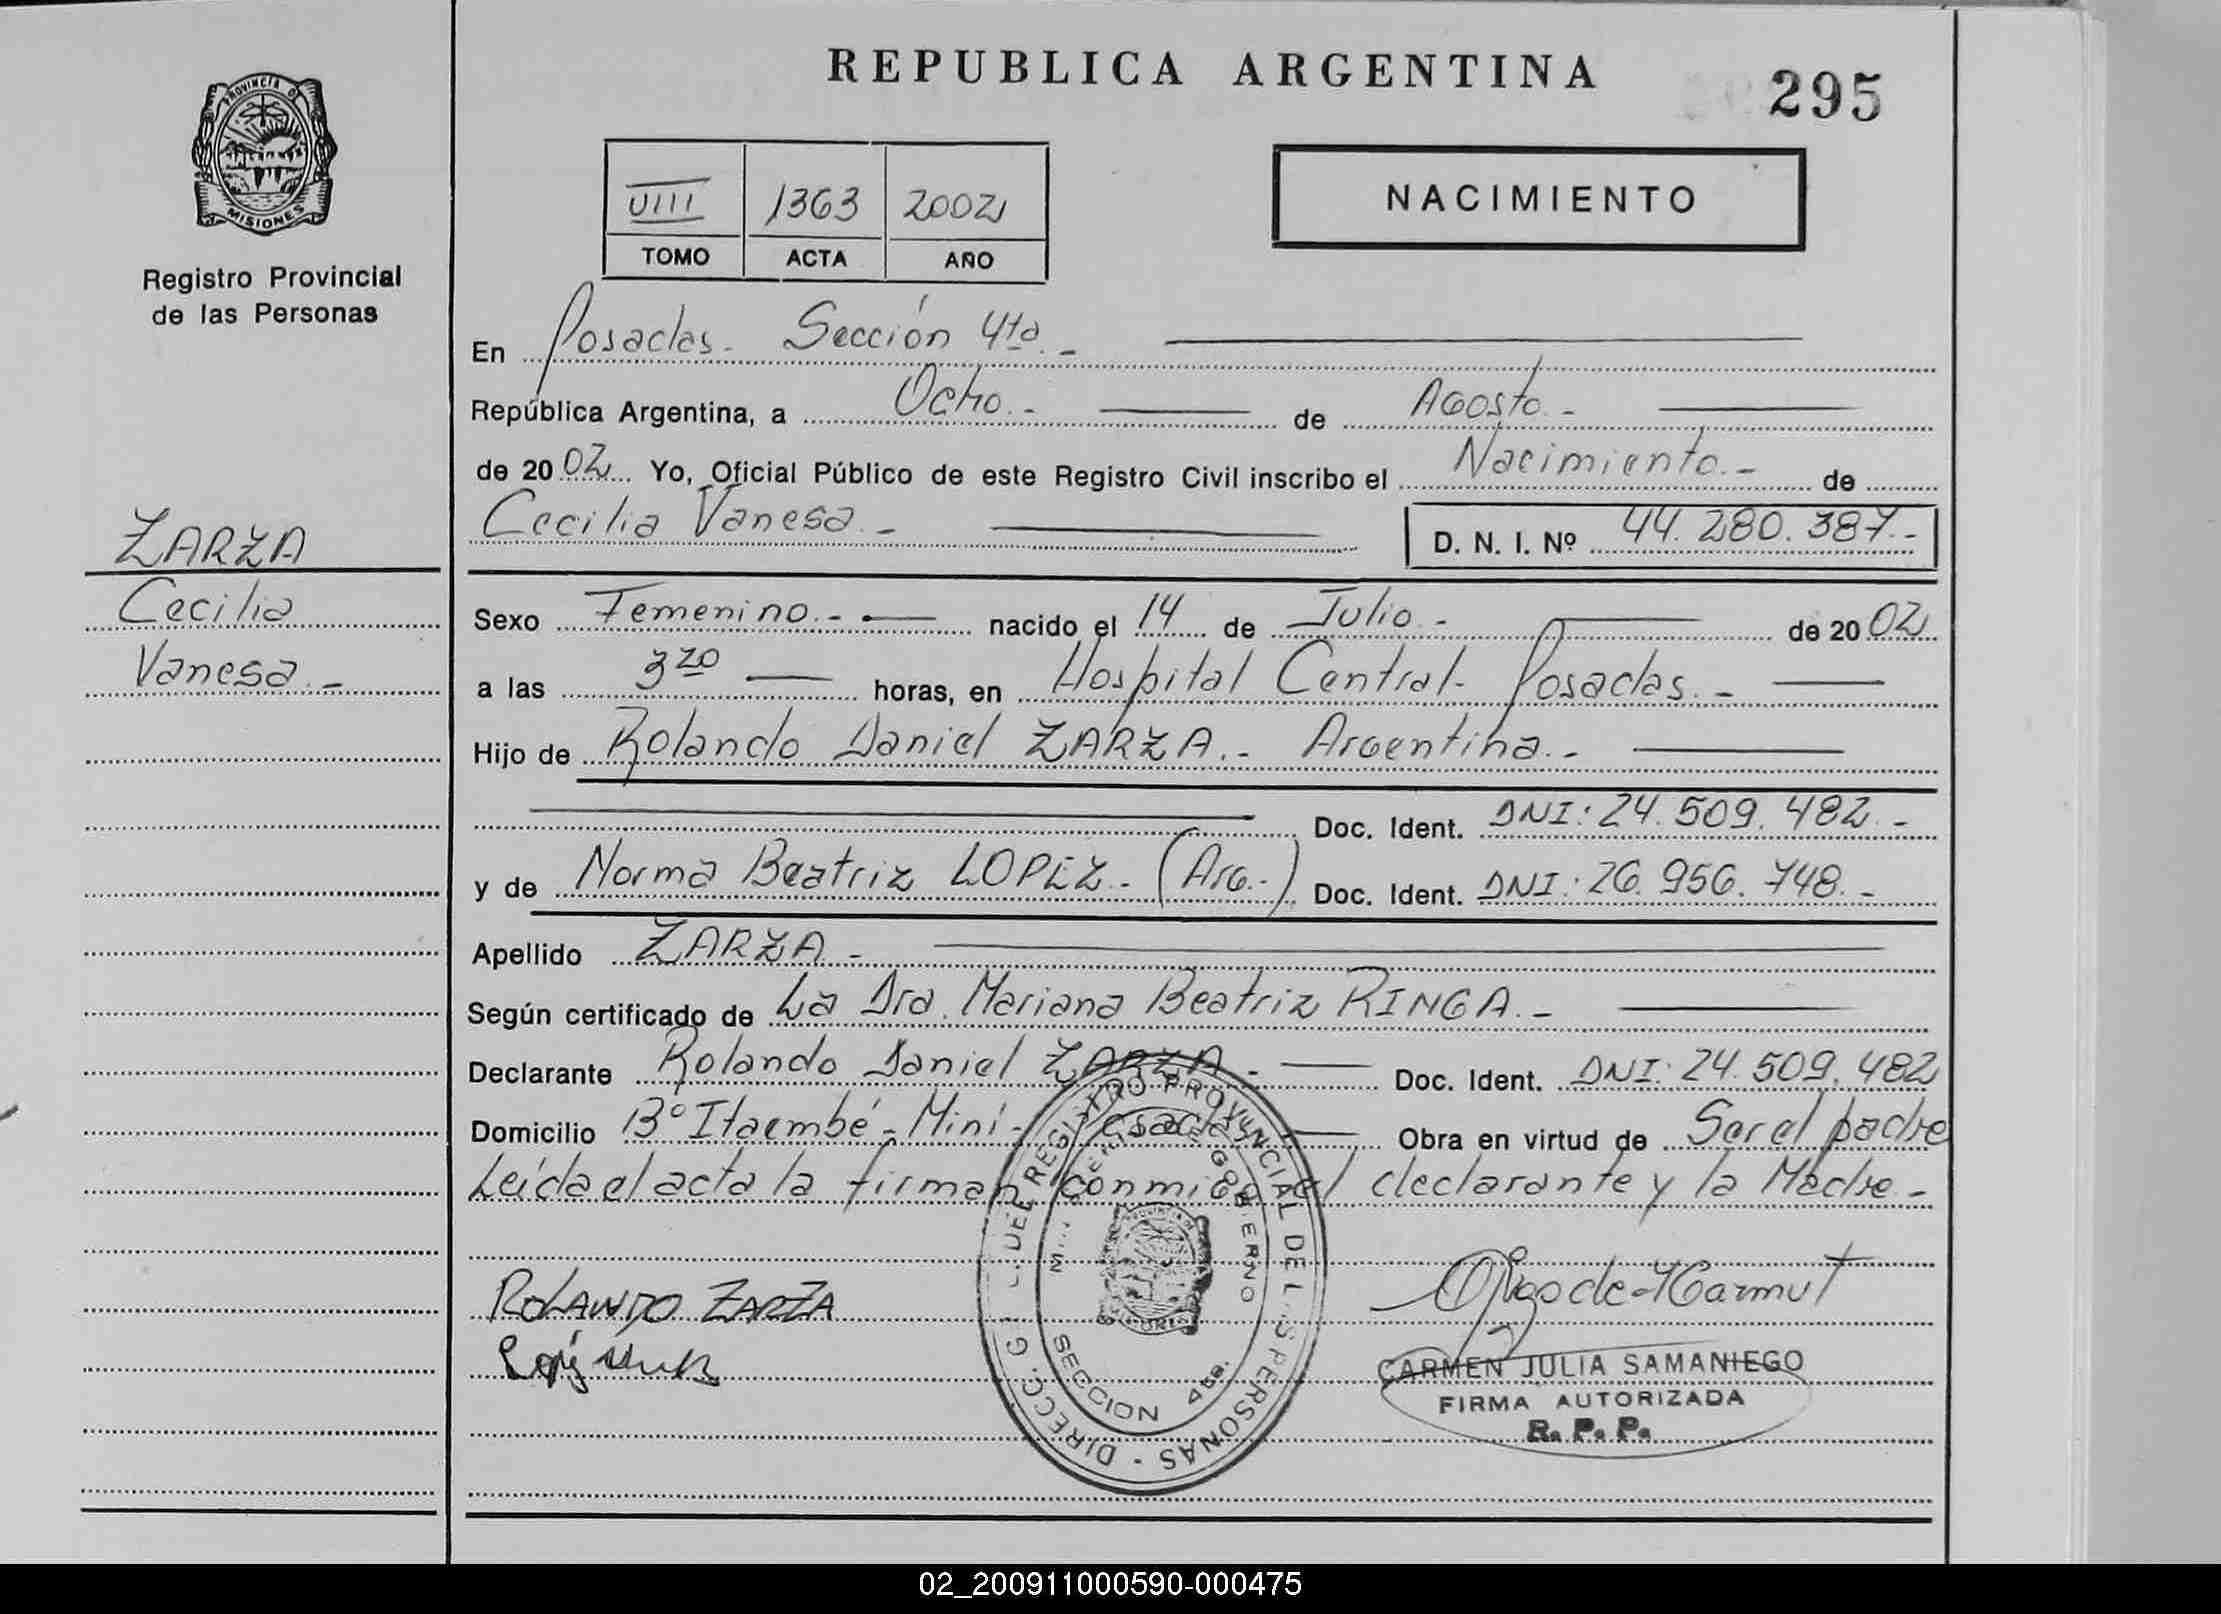 REPUBLICA ARGENTINA
295
PROVINCIA DE
MISIONES
Registro Provincial
de las Personas
VIII 1363 2002
TOMO ACTA AÑO
NACIMIENTO
En Posadas. Sección 4ta.-
República Argentina, a Ocho.- de Agosto.-
de 2002 Yo, Oficial Público de este Registro Civil inscribo el Nacimiento.- de
Cecilia Vanesa.- D. N. I. Nº 44.280.387.-
ZARZA
Cecilia
Vanesa.-
Sexo Femenino.- nacido el 14 de Julio.- de 2002
a las 3 20 horas, en Hospital Central- Posadas.-
Hijo de Rolando Daniel ZARZA.- Argentina.-
Doc. Ident. DNI: 24.509.482.-
y de Norma Beatriz LOPEZ.- (Arg.-) Doc. Ident. DNI: 26.956.748.-
Apellido ZARZA.-
Según certificado de La Dra. Mariana Beatriz RINGA.-
Declarante Rolando Daniel ZARZA.- Doc. Ident. DNI: 24.509.482
Domicilio Bº Itaembé-Miní- Posadas Obra en virtud de Ser el padre
Leída el acta la firman conmigo el declarante y la Madre.-
REGISTRO PROVINCIAL DE L S PERSONAS
GOBIERNO
SECCION 4ta.
ROLANDO ZARZA
CARMEN JULIA SAMANIEGO
FIRMA AUTORIZADA
R. P. P.
02_200911000590-000475